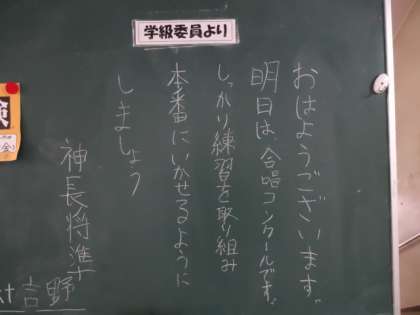 学級委員より
おはようございます。
明日は合唱コンクールです。
しっかり練習を取り組み
本番にいかせるように
しましょう
神長将準
吉野